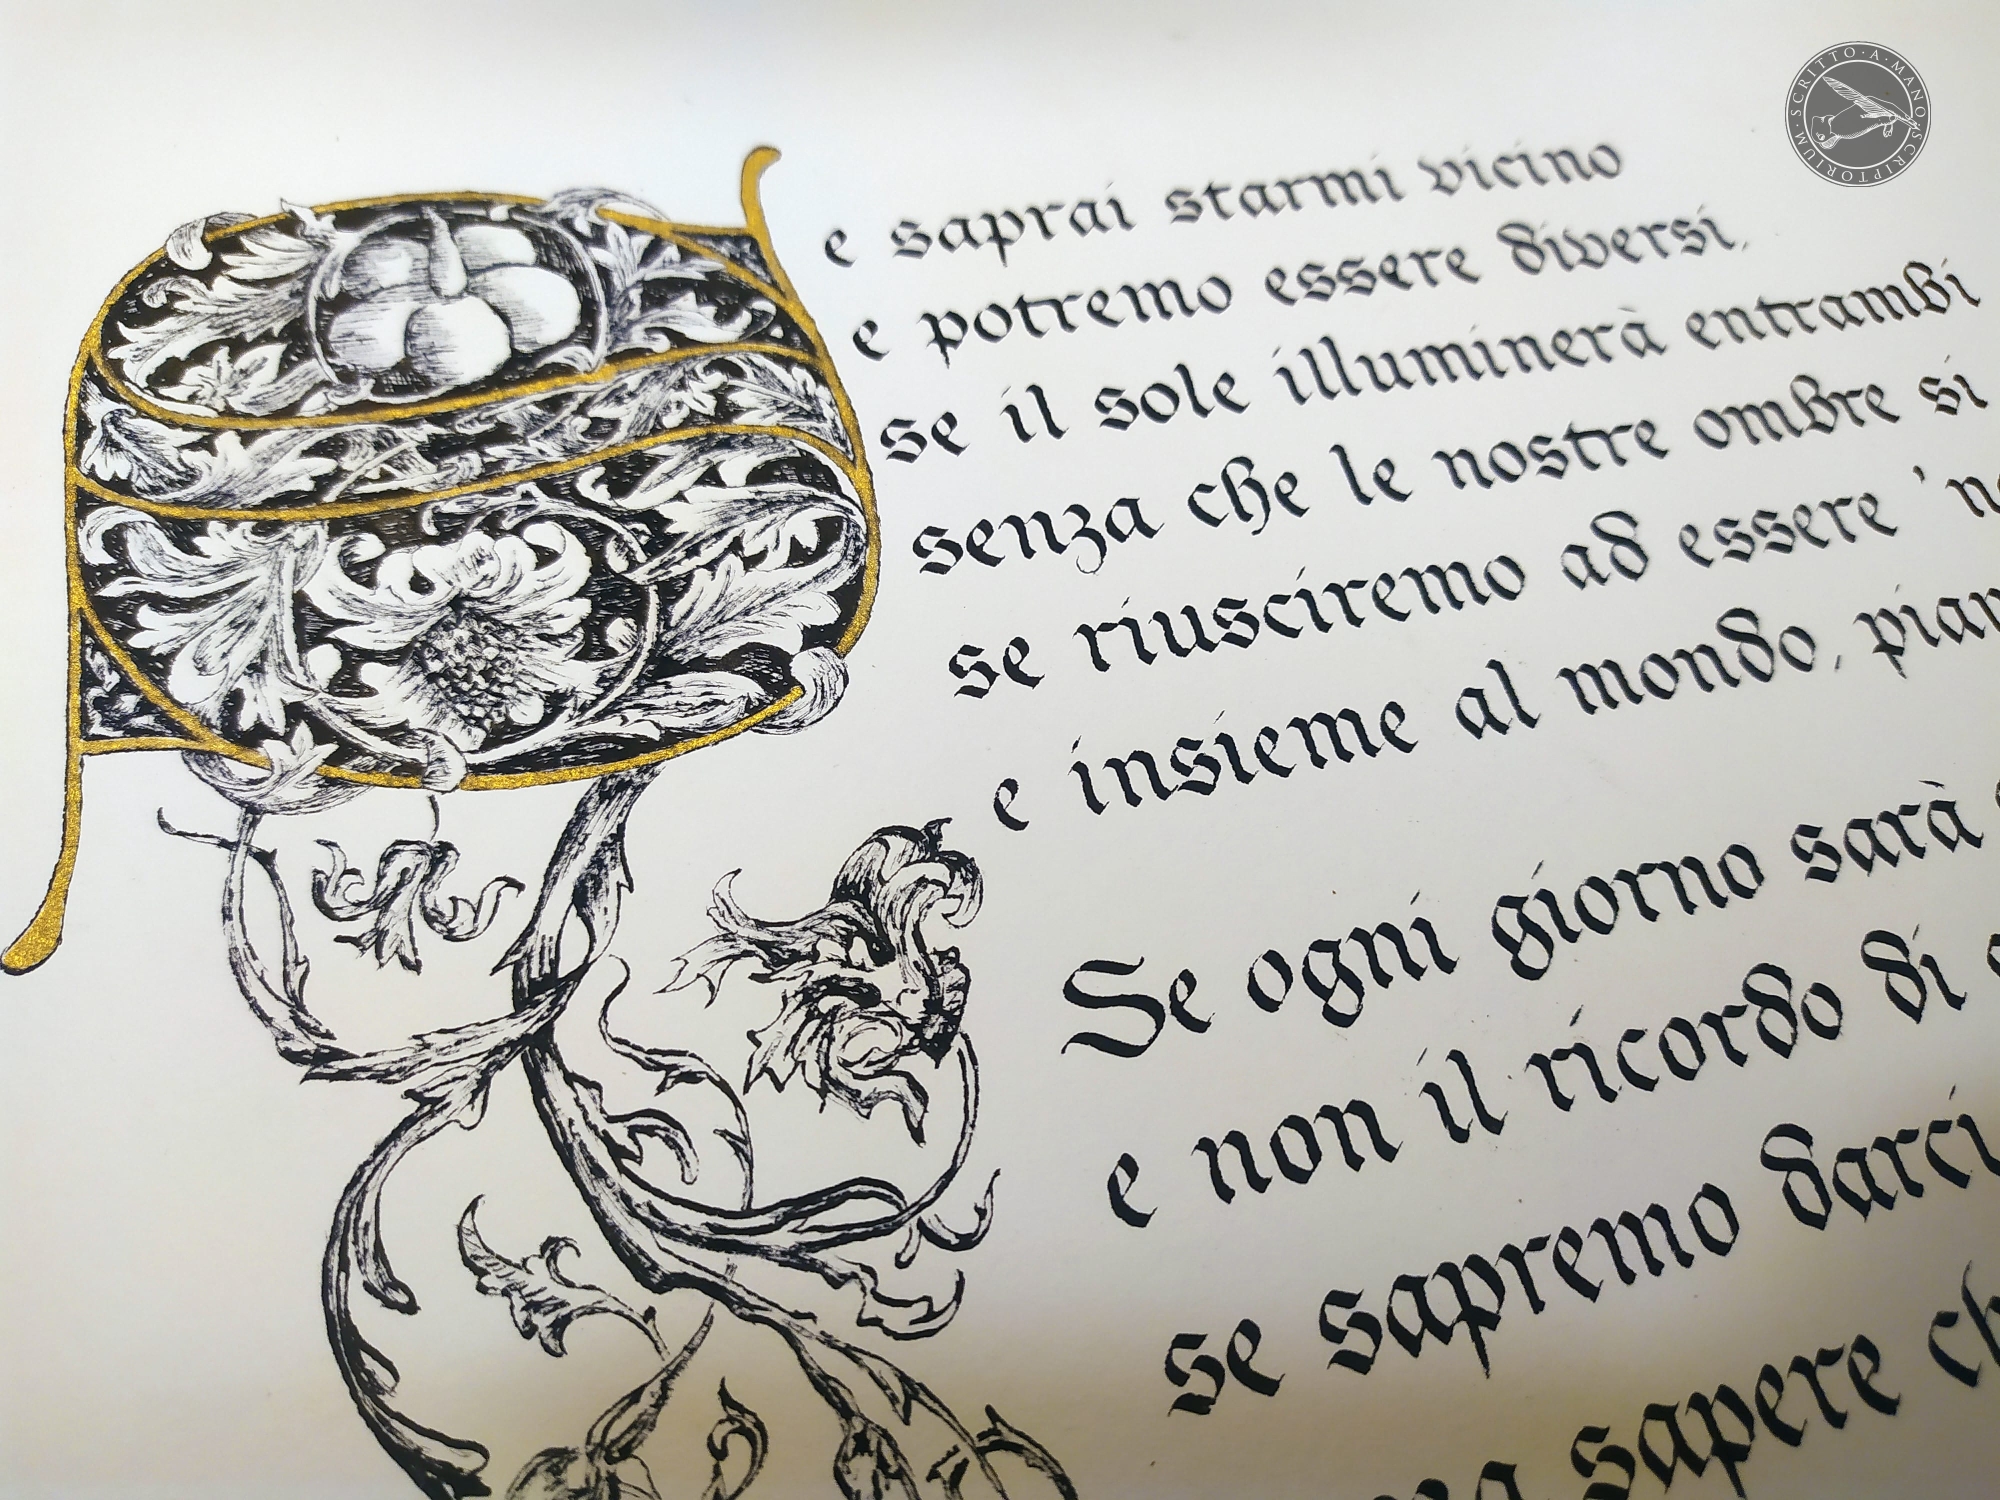 SCRITTO · A · MANO · SCRIPTORIUM ·
Se saprai starmi vicino
e potremo essere diversi,
se il sole illuminerà entrambi
senza che le nostre ombre si
se riusciremo ad essere '
e insieme al mondo,
Se ogni giorno sarà
e non il ricordo di
se sapremo darci
sapere